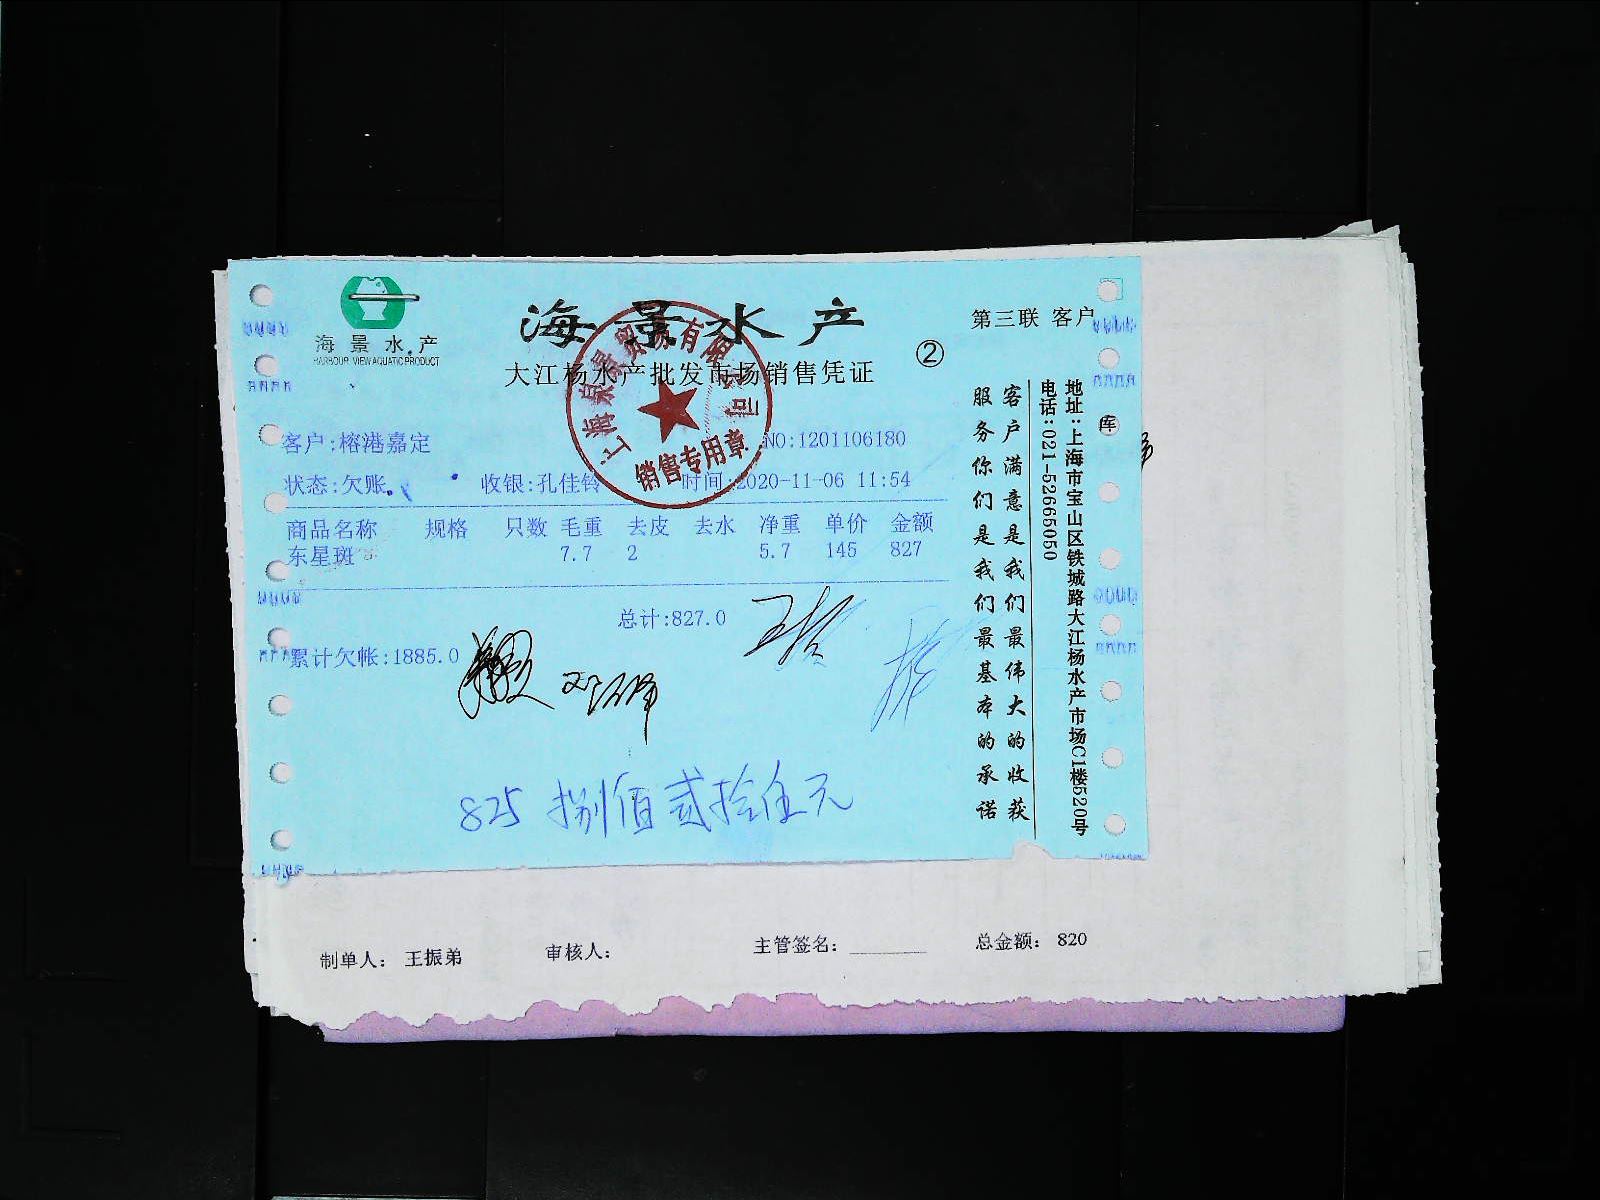 海景水产
HARBOUR VIEW AQUATIC PRODUCT
海景水产
第三联 客户
大江杨水产批发市场销售凭证
②
销售专用章
客户:榕港嘉定
NO:1201106180
状态:欠账
收银:孔佳铃
时间:2020-11-06 11:54
商品名称 规格 只数 毛重 去皮 去水 净重 单价 金额
东星斑 7.7 2 5.7 145 827
总计:827.0
累计欠帐:1885.0
825 捌佰贰拾伍元
客户满意是我们最伟大的收获
服务你们是我们最基本的承诺
地址:上海市宝山区铁城路大江杨水产市场C1楼520号
电话:021-52665050
库
制单人: 王振弟
审核人:
主管签名:
总金额: 820